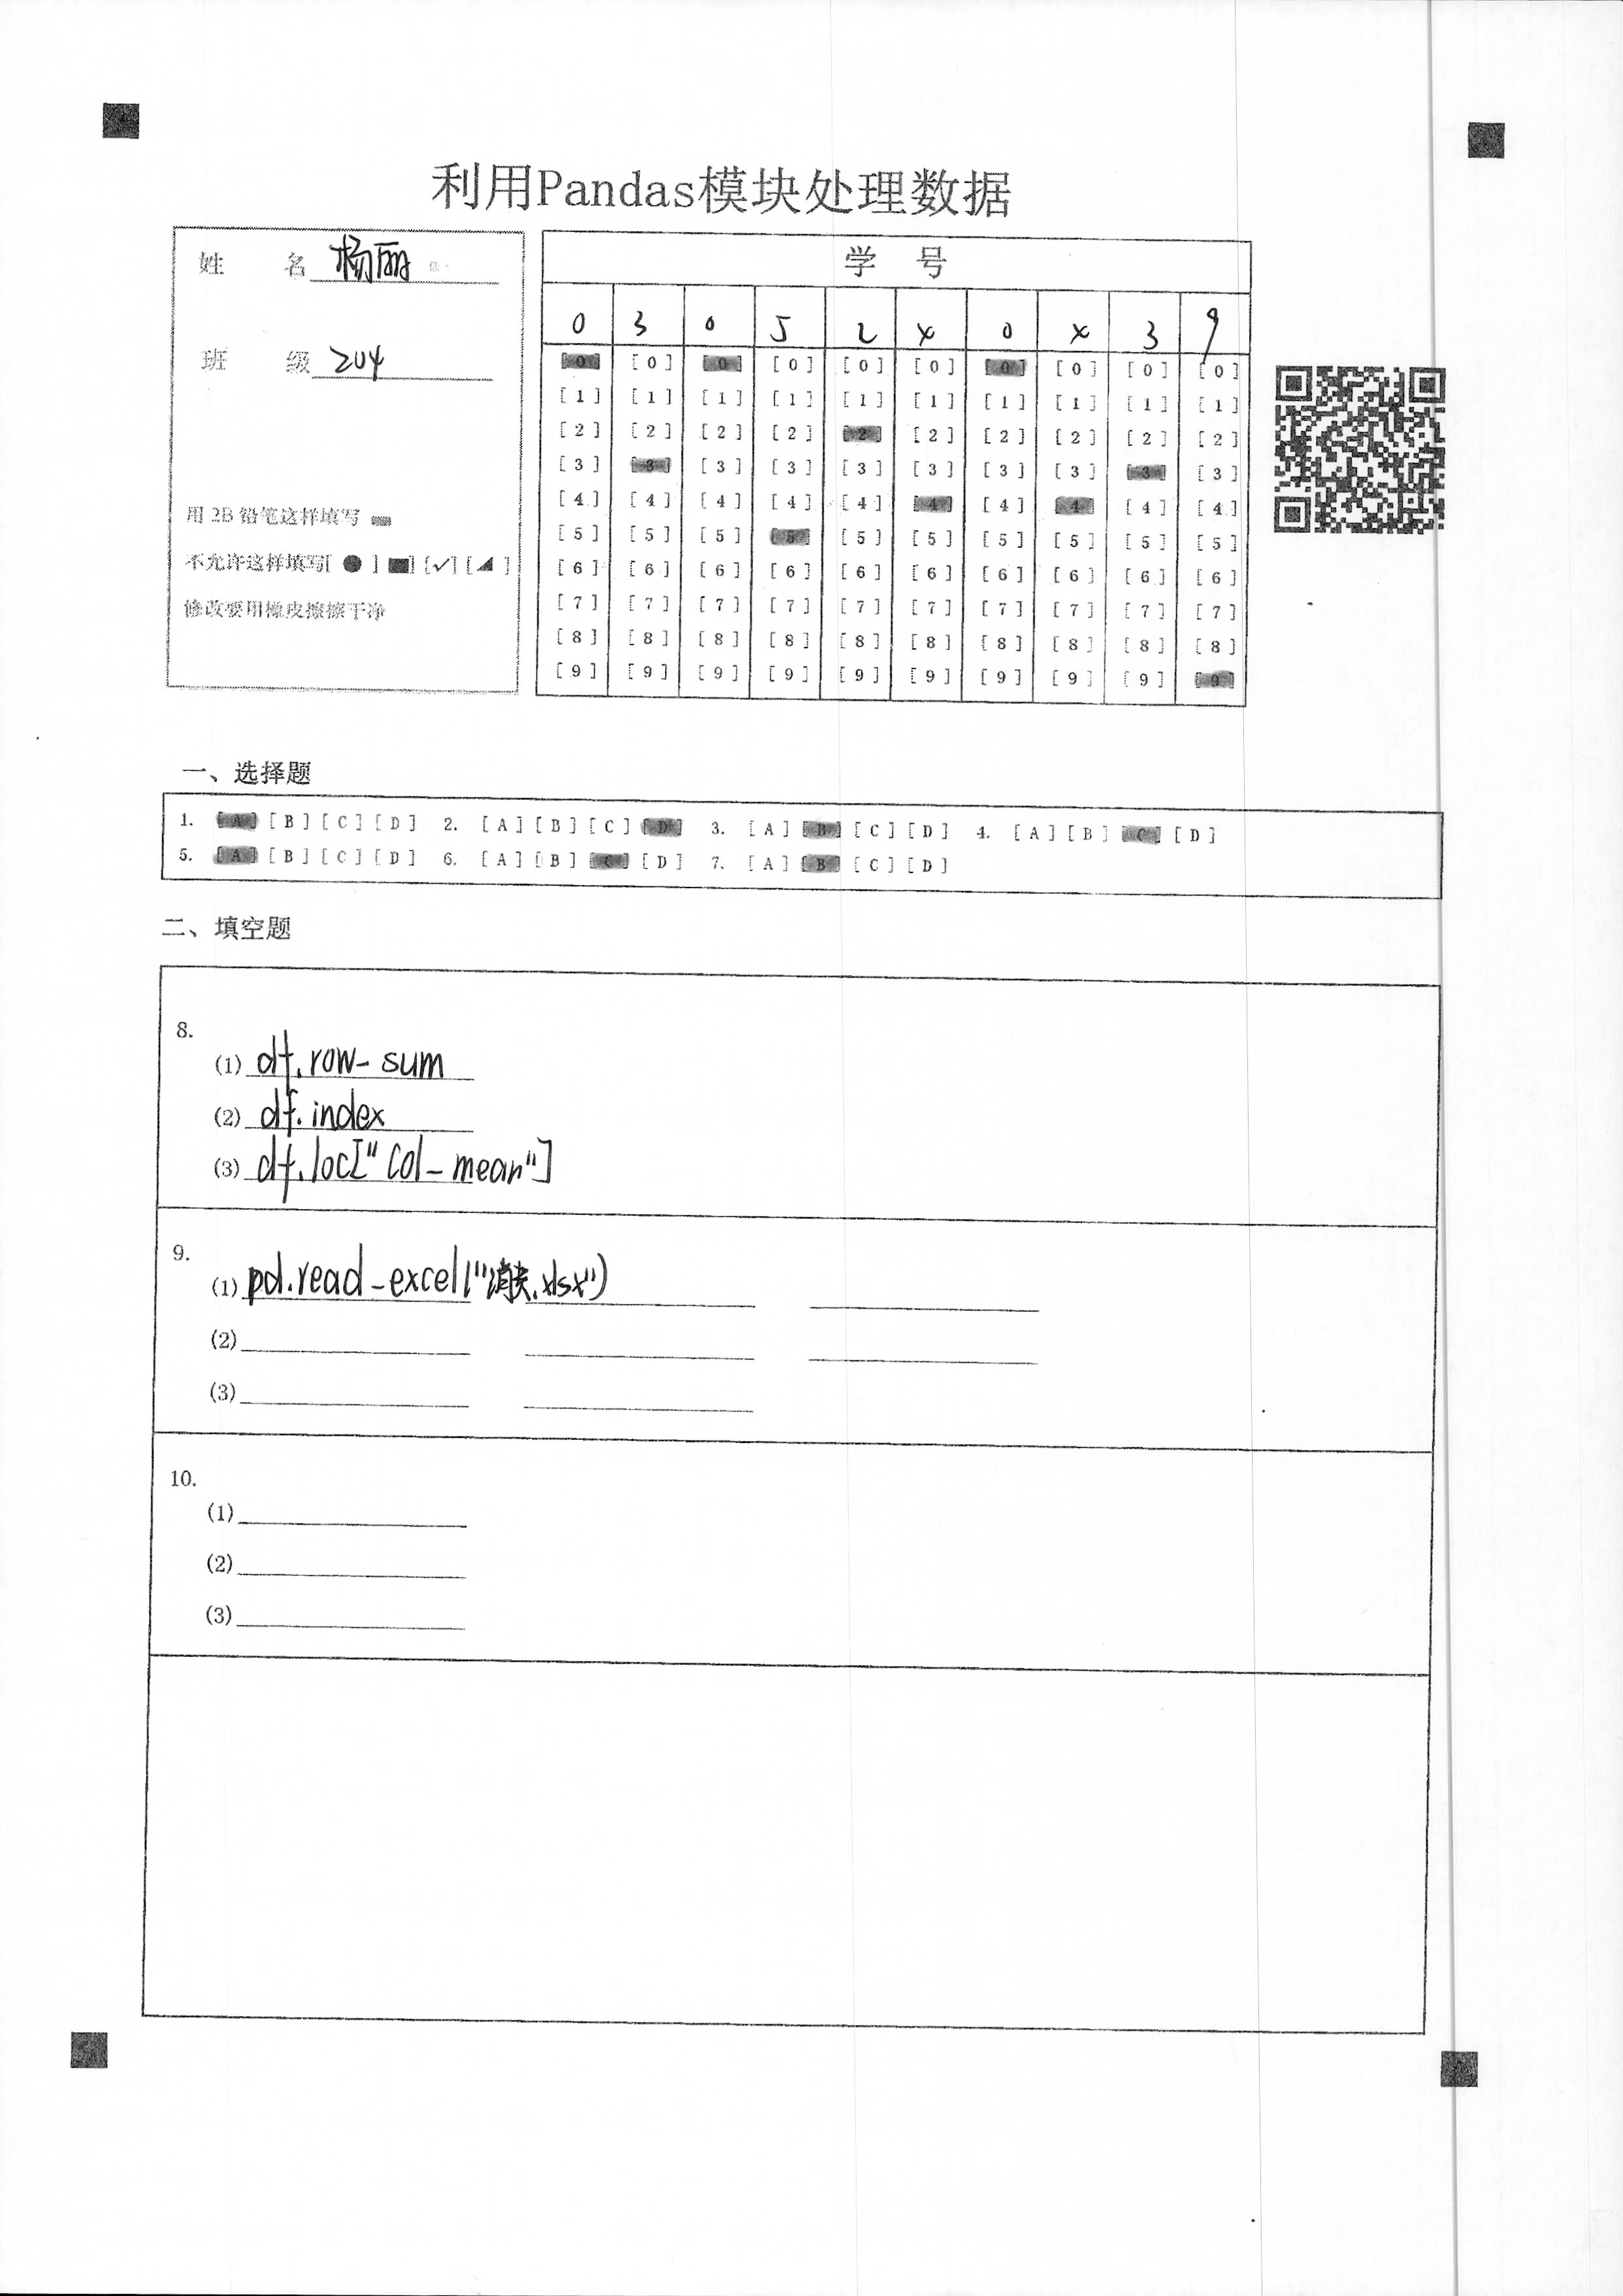 利用Pandas模块处理数据
姓 名 杨丽
班 级 204
用 2B 铅笔这样填写
不允许这样填写[ ● ] [■] [✓] [◢ ]
修改要用橡皮擦擦干净
学 号
0 3 0 5 2 4 0 4 3 9
[0] [0] [0] [0] [0] [0] [0] [0] [0] [0]
[1] [1] [1] [1] [1] [1] [1] [1] [1] [1]
[2] [2] [2] [2] [2] [2] [2] [2] [2] [2]
[3] [3] [3] [3] [3] [3] [3] [3] [3] [3]
[4] [4] [4] [4] [4] [4] [4] [4] [4] [4]
[5] [5] [5] [5] [5] [5] [5] [5] [5] [5]
[6] [6] [6] [6] [6] [6] [6] [6] [6] [6]
[7] [7] [7] [7] [7] [7] [7] [7] [7] [7]
[8] [8] [8] [8] [8] [8] [8] [8] [8] [8]
[9] [9] [9] [9] [9] [9] [9] [9] [9] [9]
一、选择题
1. [A] [B] [C] [D] 2. [A] [B] [C] [D] 3. [A] [B] [C] [D] 4. [A] [B] [C] [D]
5. [A] [B] [C] [D] 6. [A] [B] [C] [D] 7. [A] [B] [C] [D]
二、填空题
8.
(1) df.row_sum
(2) df.index
(3) df.loc["col_mean"]
9.
(1) pd.read_excel(".xlsx")
(2)
(3)
10.
(1)
(2)
(3)